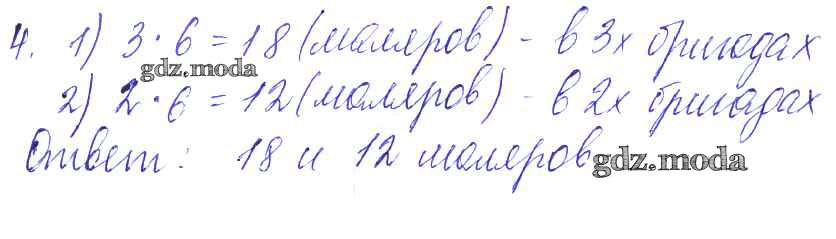 4. 1) 3·6=18 (маляров) - в 3х бригадах
gdz.moda
2) 2·6=12 (маляров) - в 2х бригадах
Ответ: 18 и 12 маляров
gdz.moda